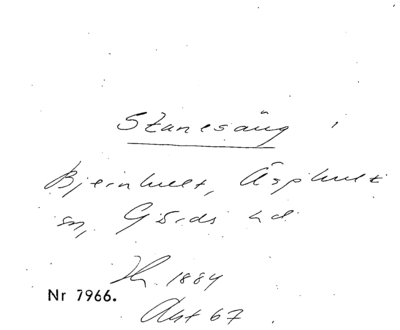 Stanesäng i
Bjernhult, Äsphult
sn, Gärds hd
1884
Nr 7966.
Akt 67.